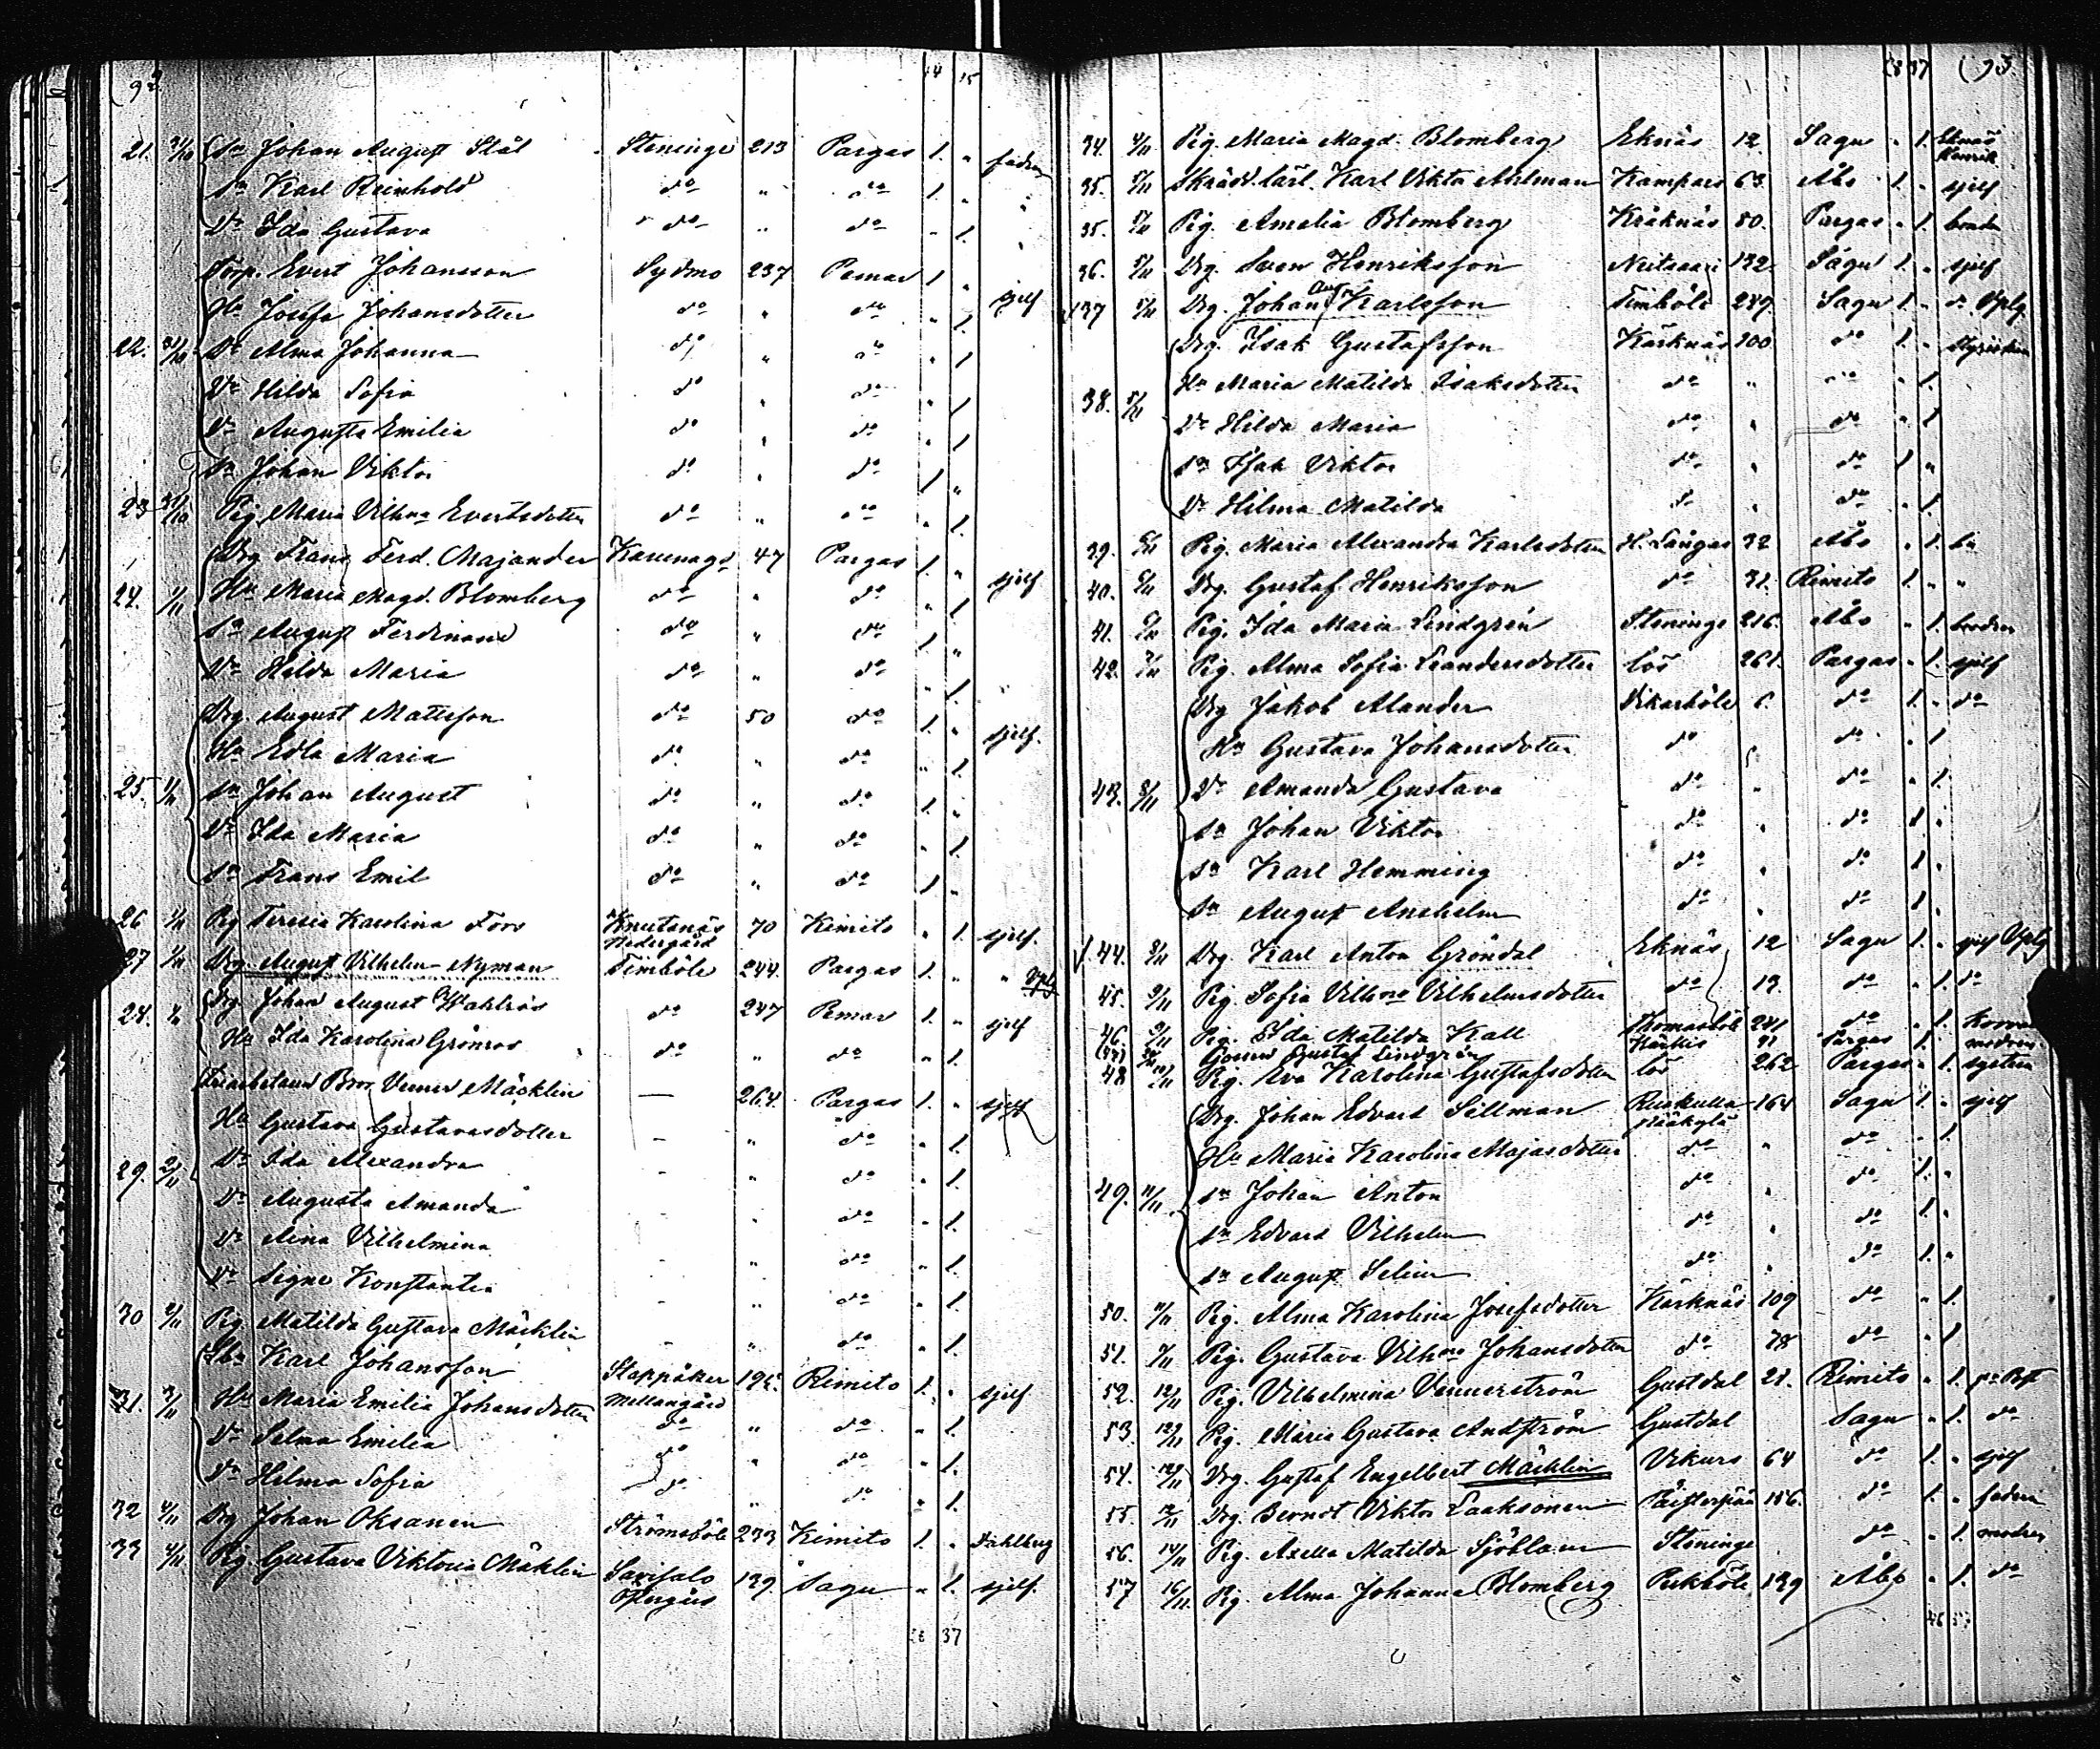 (92
14 15
21. 31/10 Sn Johan August Stål Steninge 213 Pargas 1. " fadren
Sn Karl Reinhold do " do 1. "
Dr Ida Gustava do " do " 1.
Torp. Evert Johansson Sydmo 237 Pemar 1 " sjelf
Hu Josefa Johansdotter do " do " 1.
22. 31/10 Dr Alma Johanna do " do " 1
Dr Hilda Sofia do " do " 1
Dr Augusta Emilia do " do " 1
Sn Johan Viktor do " do 1 "
23 31/10 Pig. Maria Vilhna Evertsdotter do " do " 1.
Drg Frans Ferd. Majander 47 Pargas 1. " sjelf
24. 1/11 Hu Maria Magd. Blomberg do " do " 1
Sn August Ferdinand do " do 1 "
Dr Hilda Maria do " do " 1.
Drg. August Mattsson do 50 do 1. " sjelf.
Hu Edla Maria do " do " 1.
25. 1/11 Sn Johan August do " do 1. "
Dr Ida Maria do " do " 1.
Sn Frans Emil do " do 1 "
26 1/11 Pig Teresia Karolina Fors Knutsnäs Nedergård 70 Kimito " 1. sjelf.
27 1/11 Drg. August Vilhelm Nyman Timböle 244. Pargas 1. " "
28. Drg Johan August Wahlroos do 247 Pemar 1. " sjelf
Hu Ida Karolina Grönroos do " do " 1.
Bror Verner Mäcklin — 264. Pargas 1. " sjelf
Hu Gustava Gustavasdotter - " do " 1.
29. 2/11 Dr Ida Alexandra - " do " 1.
Dr Augusta Amanda - " do " 1.
Dr Aina Vilhelmina - " do " 1.
Dr Signe Konstantia - " do " 1.
30 2/11 Pig. Matilda Gustava Mäcklin - " do " 1.
Karl Johansson Stappåker Mellangård 195. Kimito 1. " sjelf
31. 3/11 Hu Maria Emilia Johansdotter do " do " 1.
Dr Selma Emilia do " do " 1.
Dr Hilma Sofia do " do " 1.
32 4/11 Drg Johan Oksanen Strömsböle 233 Kimito 1. " Dahlberg
33 4/11 Pig Gustava Viktoria Mäklin Savisalo 139. Sagu " 1. sjelf.
37
1887 (93
34. 4/11 Pig. Maria Magd. Blomberg Eknäs 12. Sagu " 1.
35. 5/11 Skrädd.lärl. Karl Viktor Ahlman Kampars 63. Åbo 1. " sjelf
35. 5/11 Pig. Amelia Blomberg Kråknäs 80. Pargas " 1.
36. 5/11 Drg. Sven Henriksson 132. Sagu 1. " sjelf
137 5/11 Drg. Johan Aug Karlsson Timböle 249. Sagu 1. "
Drg. Isak Gustafsson Kårknäs 100 do 1. "
Hu Maria Matilda Isaksdotter do " do " 1.
38. 5/11 Dr Hilda Maria do " do " 1
Sn Isak Viktor do " do 1 "
Dr Hilma Matilda do " do " 1.
39. 5/11 Pig. Maria Alexandra Karlsdotter H. Långas 32 Åbo " 1.
40. 5/11 Drg. Gustaf Henriksson do 31. Kimito 1 " "
41. 5/11 Pig. Ida Maria Lindgrén Steninge 216. Åbo " 1. modren
42. 7/11 Pig. Alma Sofia Leandersdotter lös 261. Pargas " 1. sjelf
Drg Jakob Alander Vikarböle 6. do 1. " do
Hu Gustava Johansdotter do " do " 1
43. 8/11 Dr Amanda Gustava do " do " 1.
Sn Johan Viktor do " do 1 "
Sn Karl Hemming do " do 1 "
Sn August Anshelm do " do 1 "
44. 8/11 Drg. Karl Anton Gröndal Eknäs 12 Sagu 1. " sjelf
45. 9/11 Pig. Sofia Vilhna Vilhelmsdotter do 13. do " 1. do
46. 9/11 Pig. Ida Matilda Kall Thomasböle 241 do " 1.
(47) Gustaf Lindgrén Pargas 1. modren
48 Pig. Eva Karolina Gustafsdotter lös 262 Pargas " 1. system
Drg. Johan Edvard Sillman Ruskulla 164 Sagu 1. " sjelf
Hu Maria Karolina Majasdotter do " do " 1.
49. 11/11 Sn Johan Anton do " do 1. "
Sn Edvard Vilhelm do " do 1. "
Sn August Selim do " do 1. "
50. 11/11 Pig. Alma Karolina Josefsdotter Kårknäs 109 do " 1.
51. 11/11 Pig. Gustava Vilhna Johansdotter do 78 do " 1
52. 12/11 Pig. Vilhelmina Vennerström Gustdal 21. Kimito " 1.
53. 12/11 Pig. Maria Gustava Andström Gustdal Sagu " 1. do
54. 12/11 Drg. Gustaf Engelbert Mäcklin 64 do 1. " sjelf
55. Drg. Berndt Viktor Laaksonen 156. do 1. " fadren
56. 14/11 Pig. Axella Matilda Sjöblom Steninge do " 1. modren
57 16/11 Pig. Alma Johanna Blomberg Pukböle 139 Åbo " 1. do